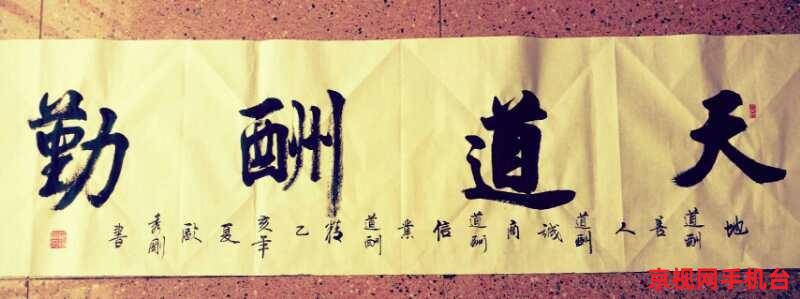 天道酬勤
地道酬善人道酬诚商道酬信業道酬乙亥年夏歐剛書
京视网手机台